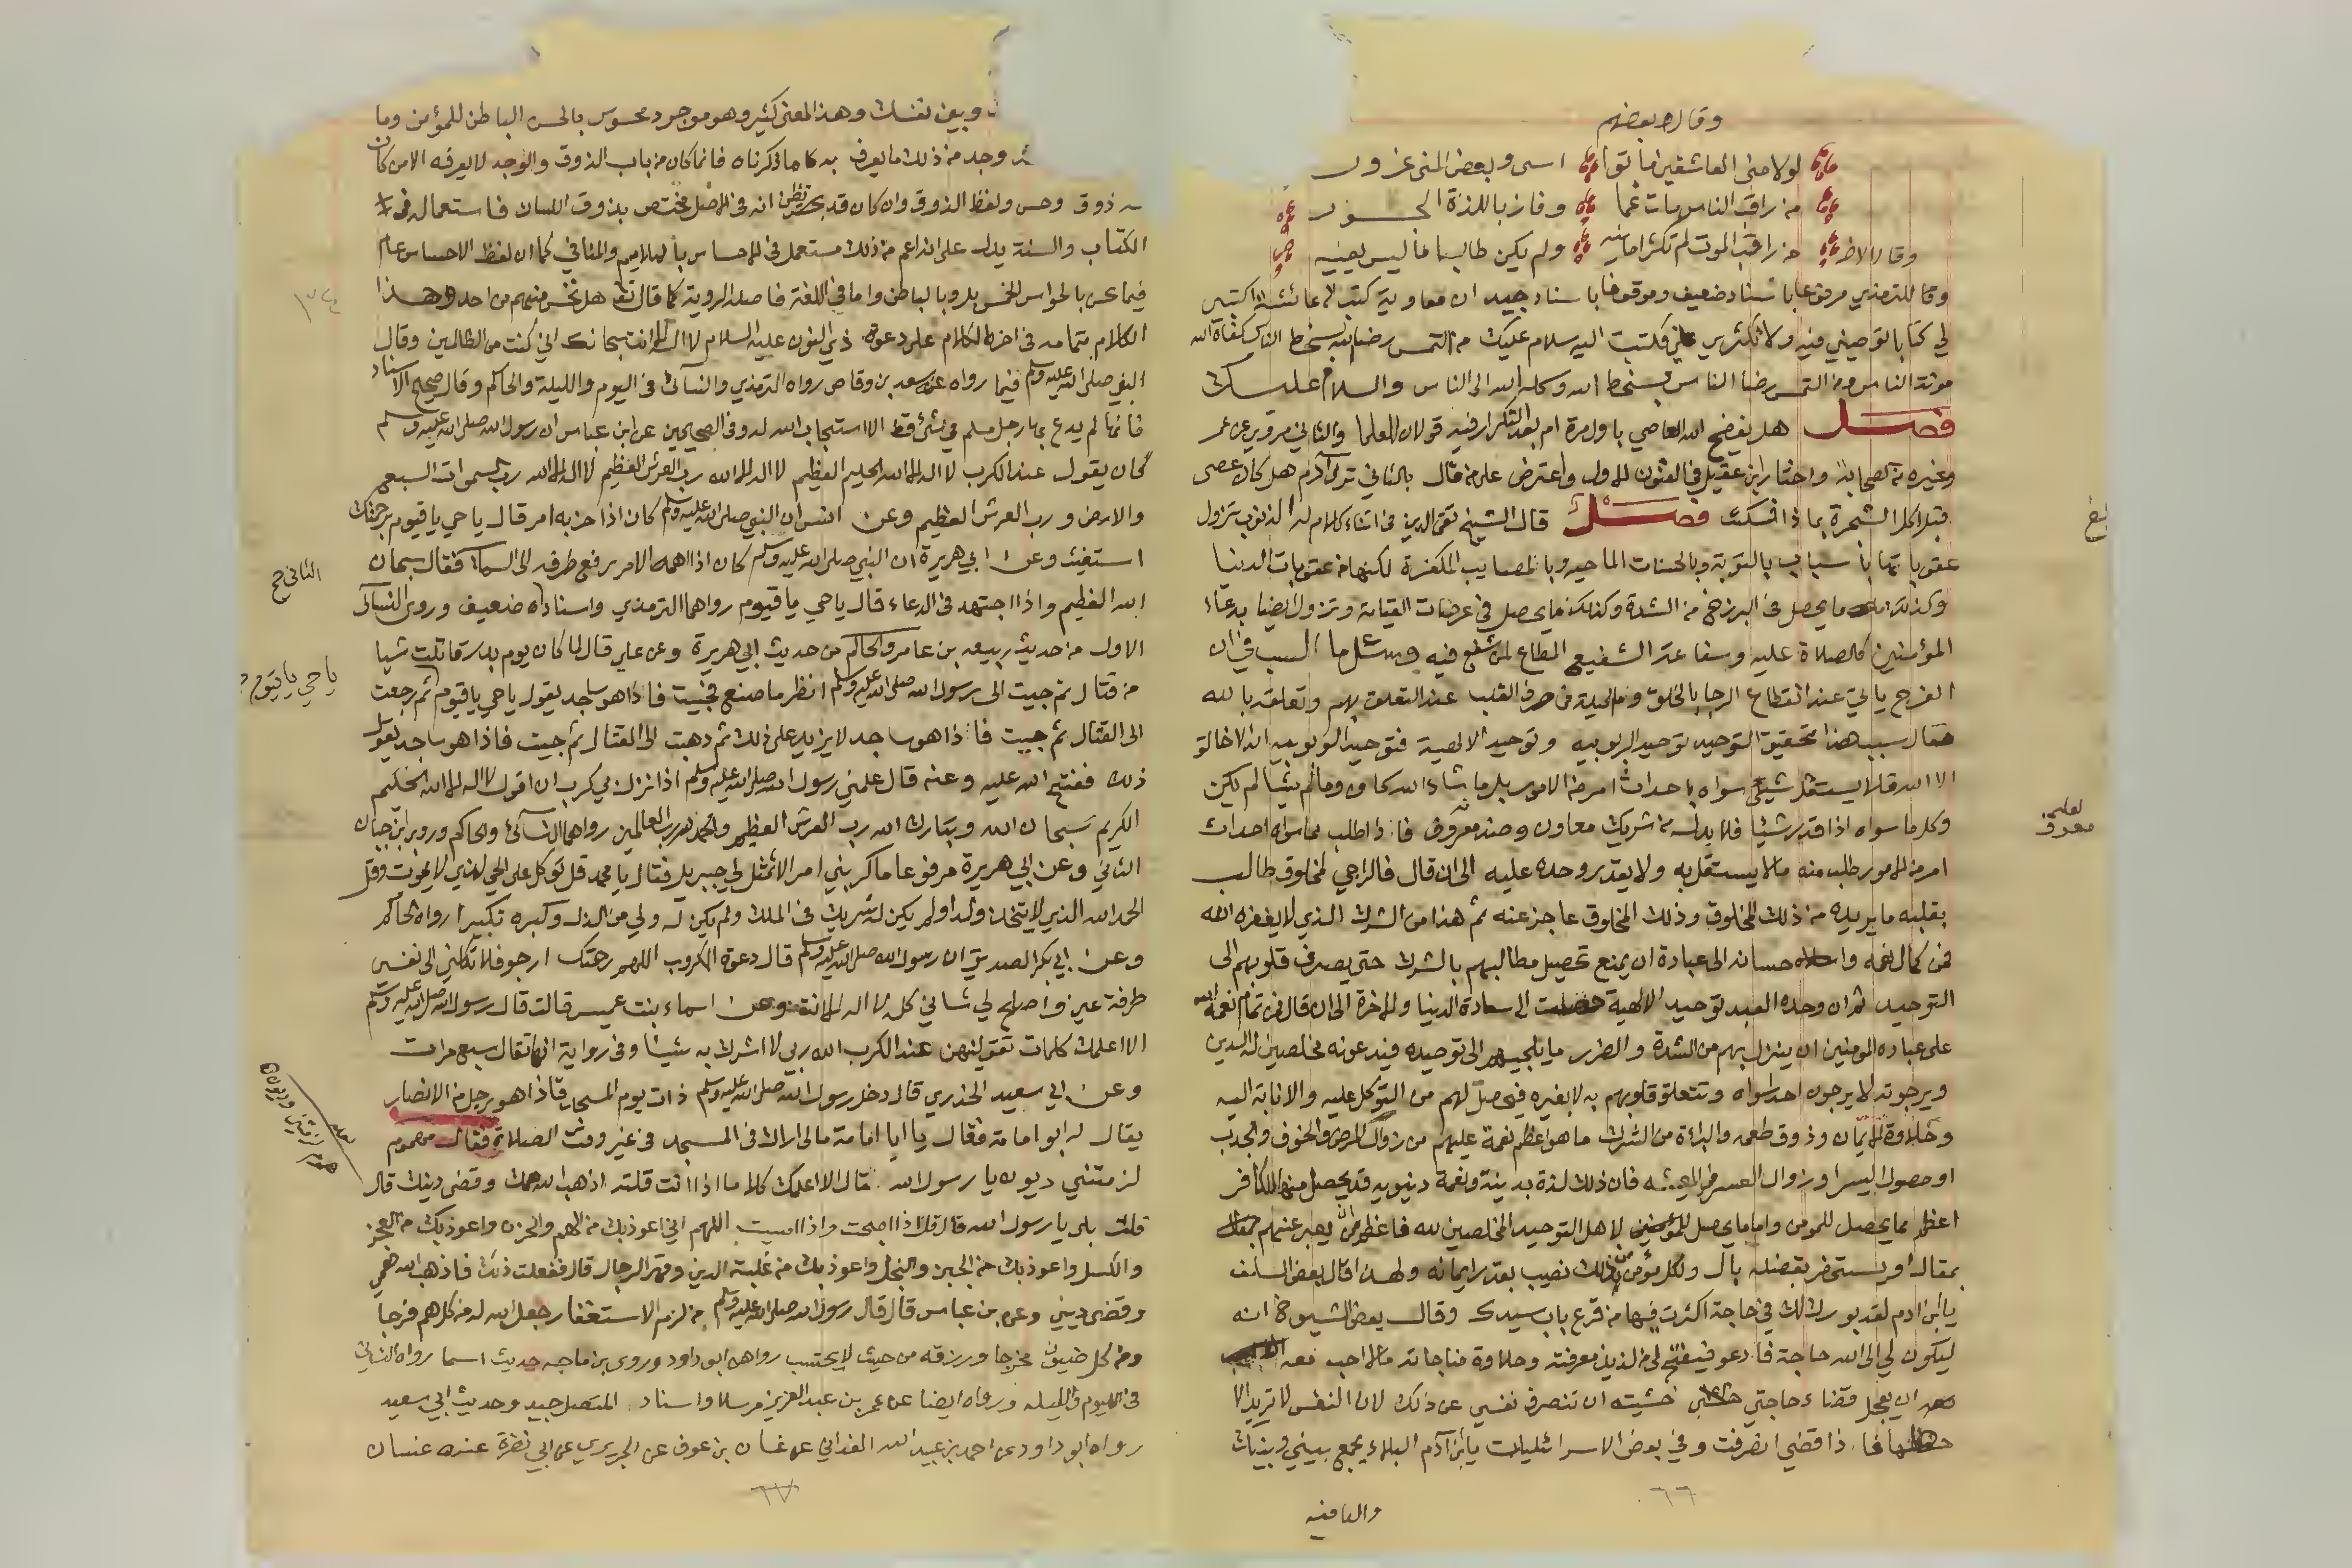 وقال بعضهم
لولا منى العاشقين ماتوا اسى وبعض المنى غرور
من راقب الناس مات غما وفاز باللذة الجسور
وقال الاخر من راقب الموت لم تكثر امانيه ولم يكن طالبا ما ليس يعنيه
وقا للترمذي مرفوعا باسناد ضعيف وموقوفا باسناد جيد ان معاوية كتب الى عائشة اكتبي
لي كتابا توصيني فيه ولا تكثري علي فكتبت اليه سلام عليك من التمس رضا الله بسخط الناس كفاه الله
مونة الناس ومن التمس رضا الناس بسخط الله وكله الله الى الناس والسلام عليك
فصل هل يفضح الله العاصي باول مرة ام بعد التكرار فيه قولان للعلما والثاني مروي عن عمر
وغيره من الصحابة واختار ابن عقيل في الفنون الاول واعترض على من قال بالثاني ترى آدم هل كان عصى
قبل اكل الشجرة بماذا فسكت فصل قال الشيخ تقي الدين في اثناء كلام له الذنوب تزول
عقوباتها باسباب بالتوبة وبالحسنات الماحيه وبالمصايب المكفرة لكنها من عقوبات الدنيا
وكذلك ما يحصل في البرزخ من الشدة وكذلك ما يحصل في عرصات القيامة وتزول ايضا بدعاء
المؤمنين كالصلاة عليه وشفاعة الشفيع المطاع لمن شفع فيه وسئل ما السبب في ان
الفرج ياتي عند انقطاع الرجا بالخلق وما الحيلة في صرف القلب عند التعلق بهم وتعلقه بالله
فقال سبب هذا تحقيق التوحيد توحيد الربوبيه وتوحيد الالهية فتوحيد الربوبيه انه لا خالق
الا الله فلا يستقل شيئ سواه باحداث امر من الامور بل ما شاء الله كان وما لم يشا لم يكن
وكل ما سواه اذا قدر شيئا فلا بد له من شريك معاون وضد معوق فاذا طلب مما سواه احداث
امر من الامور طلب منه ما لا يستقل به ولا يقدر وحده عليه الى ان قال فالراجي لمخلوق طالب
بقلبه ما يريده من ذلك المخلوق وذلك المخلوق عاجز عنه ثم هذا من الشرك الذي لا يغفره الله
فمن كمال نعمه واحسانه الى عبادة ان يمنع تحصيل مطالبهم بالشرك حتى يصرف قلوبهم الى
التوحيد ثم ان وحده العبد توحيد الالهية حصلت له سعادة الدنيا والاخرة الى ان قال فمن تمام نعمة الله
على عباده المومنين ان ينزل بهم من الشدة والضرر ما يلجيهم الى توحيده فيدعونه مخلصين له الدين
ويرجونه لا يرجون احدا سواه وتتعلق قلوبهم به لا بغيره فيحصل لهم من التوكل عليه والانابة اليه
وحلاوة الايمان وذوق طعمه والبراءة من الشرك ما هو اعظم نعمة عليهم من زوال المرض والخوف والجدب
او حصول اليسر او زوال العسر في المعيشه فان ذلك لذة بدنية ونعمة دنيويه قد يحصل منها للكافر
اعظم مما يحصل للمومن واما ما يحصل لاهل التوحيد المخلصين لله فاعظم من ان يعبر عنهم
بمقال او يستحضر تفضله بال ولكل مؤمن من ذلك نصيب بقدر ايمانه ولهذا قال بعض السلف
يا ابن ادم لقد بورك لك في حاجة اكثرت فيها من قرع باب سيدك وقال بعض الشيوخ انه
ليكون لي الى الله حاجة فادعو فيفتح لي من لذيذ معرفته وحلاوة مناجاته ما لا احب معه
ان يعجل قضاء حاجتي خشيته ان تنصرف نفسي عن ذلك لان النفس لا تريد الا
حظها فاذا قضي انصرفت وفي بعض الاسرائليات يا ابن آدم البلاء يجمع بيني وبينك
والعافيه
٦٦
لعله
معوق
وبين نفسك وهذا المعنى كثير وهو موجود محسوس بالحس الباطن للمؤمن وما
وجد من ذلك ما يعرف به ما ذكرناه فانما كان من باب الذوق والوجد لا يعرفه الا من كان
له ذوق وحس ولفظ الذوق وان كان قد يظن انه في الاصل مختص بذوق اللسان فاستعماله في
الكتاب والسنة يدل على انه اعم من ذلك مستعمل في الاحساس بالملايم والمنافي كما ان لفظ الاحساس عام
فيما يحس بالحواس الخمس بل وبالباطن واما في اللغة فاصله الروية كما قال تعالى هل تحس منهم من احد وهذا
الكلام بتمامه في اخر الكلام على دعوة ذي النون عليه السلام لا اله الا انت سبحانك اني كنت من الظالمين وقال
النبي صلى الله عليه وسلم فيما رواه عنه سعد بن وقاص رواه الترمذي والنسائي في اليوم والليلة والحاكم وقال صحيح الاسناد
فانها لم يدع بها رجل مسلم في شئ قط الا استجاب الله له وفي الصحيحين عن ابن عباس ان رسول الله صلى الله عليه وسلم
كان يقول عند الكرب لا اله الا الله الحليم العظيم لا اله الا الله رب العرش العظيم لا اله الا الله رب السموات السبع
والارض ورب العرش العظيم وعن انس ان النبي صلى الله عليه وسلم كان اذا حزبه امر قال يا حي يا قيوم برحمتك
استغيث وعن ابي هريرة ان النبي صلى الله عليه وسلم كان اذا اهمه الامر رفع طرفه الى السماء فقال سبحان
الله العظيم واذا اجتهد في الدعاء قال يا حي يا قيوم رواهما الترمذي واسناده ضعيف وروى النسائي
الاول من حديث ربيعه بن عامر والحاكم من حديث ابي هريرة وعن علي قال لما كان يوم بدر قاتلت شيا
من قتال ثم جيت الى رسول الله صلى الله عليه وسلم انظر ما صنع فجيت فاذا هو ساجد يقول يا حي يا قيوم ثم رجعت
الى القتال ثم جيت فاذا هو ساجد لا يزيد على ذلك ثم ذهبت الى القتال ثم جيت فاذا هو ساجد يقول
ذلك ففتح الله عليه وعنه قال علمني رسول الله صلى الله عليه وسلم اذا نزل بي كرب ان اقول لا اله الا الله الحليم
الكريم سبحان الله وتبارك الله رب العرش العظيم والحمد لله رب العالمين رواهما النسائي والحاكم وروى ابن حبان
الثاني وعن ابي هريرة مرفوعا ما كربني امر الا تمثل لي جبريل فقال يا محمد قل توكل على الحي الذي لا يموت وقل
الحمد لله الذي لا يتخذ ولدا ولم يكن له شريك في الملك ولم يكن له ولي من الذل وكبره تكبيرا رواه الحاكم
وعن ابي بكر الصديق ان رسول الله صلى الله عليه وسلم قال دعوة المكروب اللهم رحمتك ارجو فلا تكلني الى نفسي
طرفة عين واصلح لي شاني كله لا اله الا انت وعن اسماء بنت عميس قالت قال رسول الله صلى الله عليه وسلم
الا اعلمك كلمات تقوليهن عند الكرب الله ربي لا اشرك به شيئا وفي رواية انها تقال سبع مرات
وعن ابي سعيد الخدري قال دخل رسول الله صلى الله عليه وسلم ذات يوم المسجد فاذا هو برجل من الانصار
يقال له ابو امامة فقال يا ابا امامة مالي اراك في المسجد في غير وقت الصلاة فقال هموم
لزمتني وديون يا رسول الله قال الا اعلمك كلاما اذا انت قلته اذهب الله همك وقضى دينك قال
قلت بلى يا رسول الله قال قل اذا اصبحت واذا امسيت اللهم اني اعوذ بك من الهم والحزن واعوذ بك من العجز
والكسل واعوذ بك من الجبن والبخل واعوذ بك من غلبة الدين وقهر الرجال قال ففعلت ذلك فاذهب الله همي
وقضى ديني وعن بن عباس قال قال رسول الله صلى الله عليه وسلم من لزم الاستغفار جعل الله له من كل هم فرجا
ومن كل ضيق مخرجا ورزقه من حيث لا يحتسب رواهن ابو داود وروى بن ماجه حديث اسما رواه النسائي
في اليوم والليله ورواه ايضا عن عمر بن عبد العزيز مرسلا واسناد المتصل جيد وحديث ابي سعيد
رواه ابو داود عن احمد بن عبيد الله الغداني عن غسان بن عوف عن الجريري عن ابي نضرة عنه غسان
٦٧
الثاني صح
يا حي يا قيوم